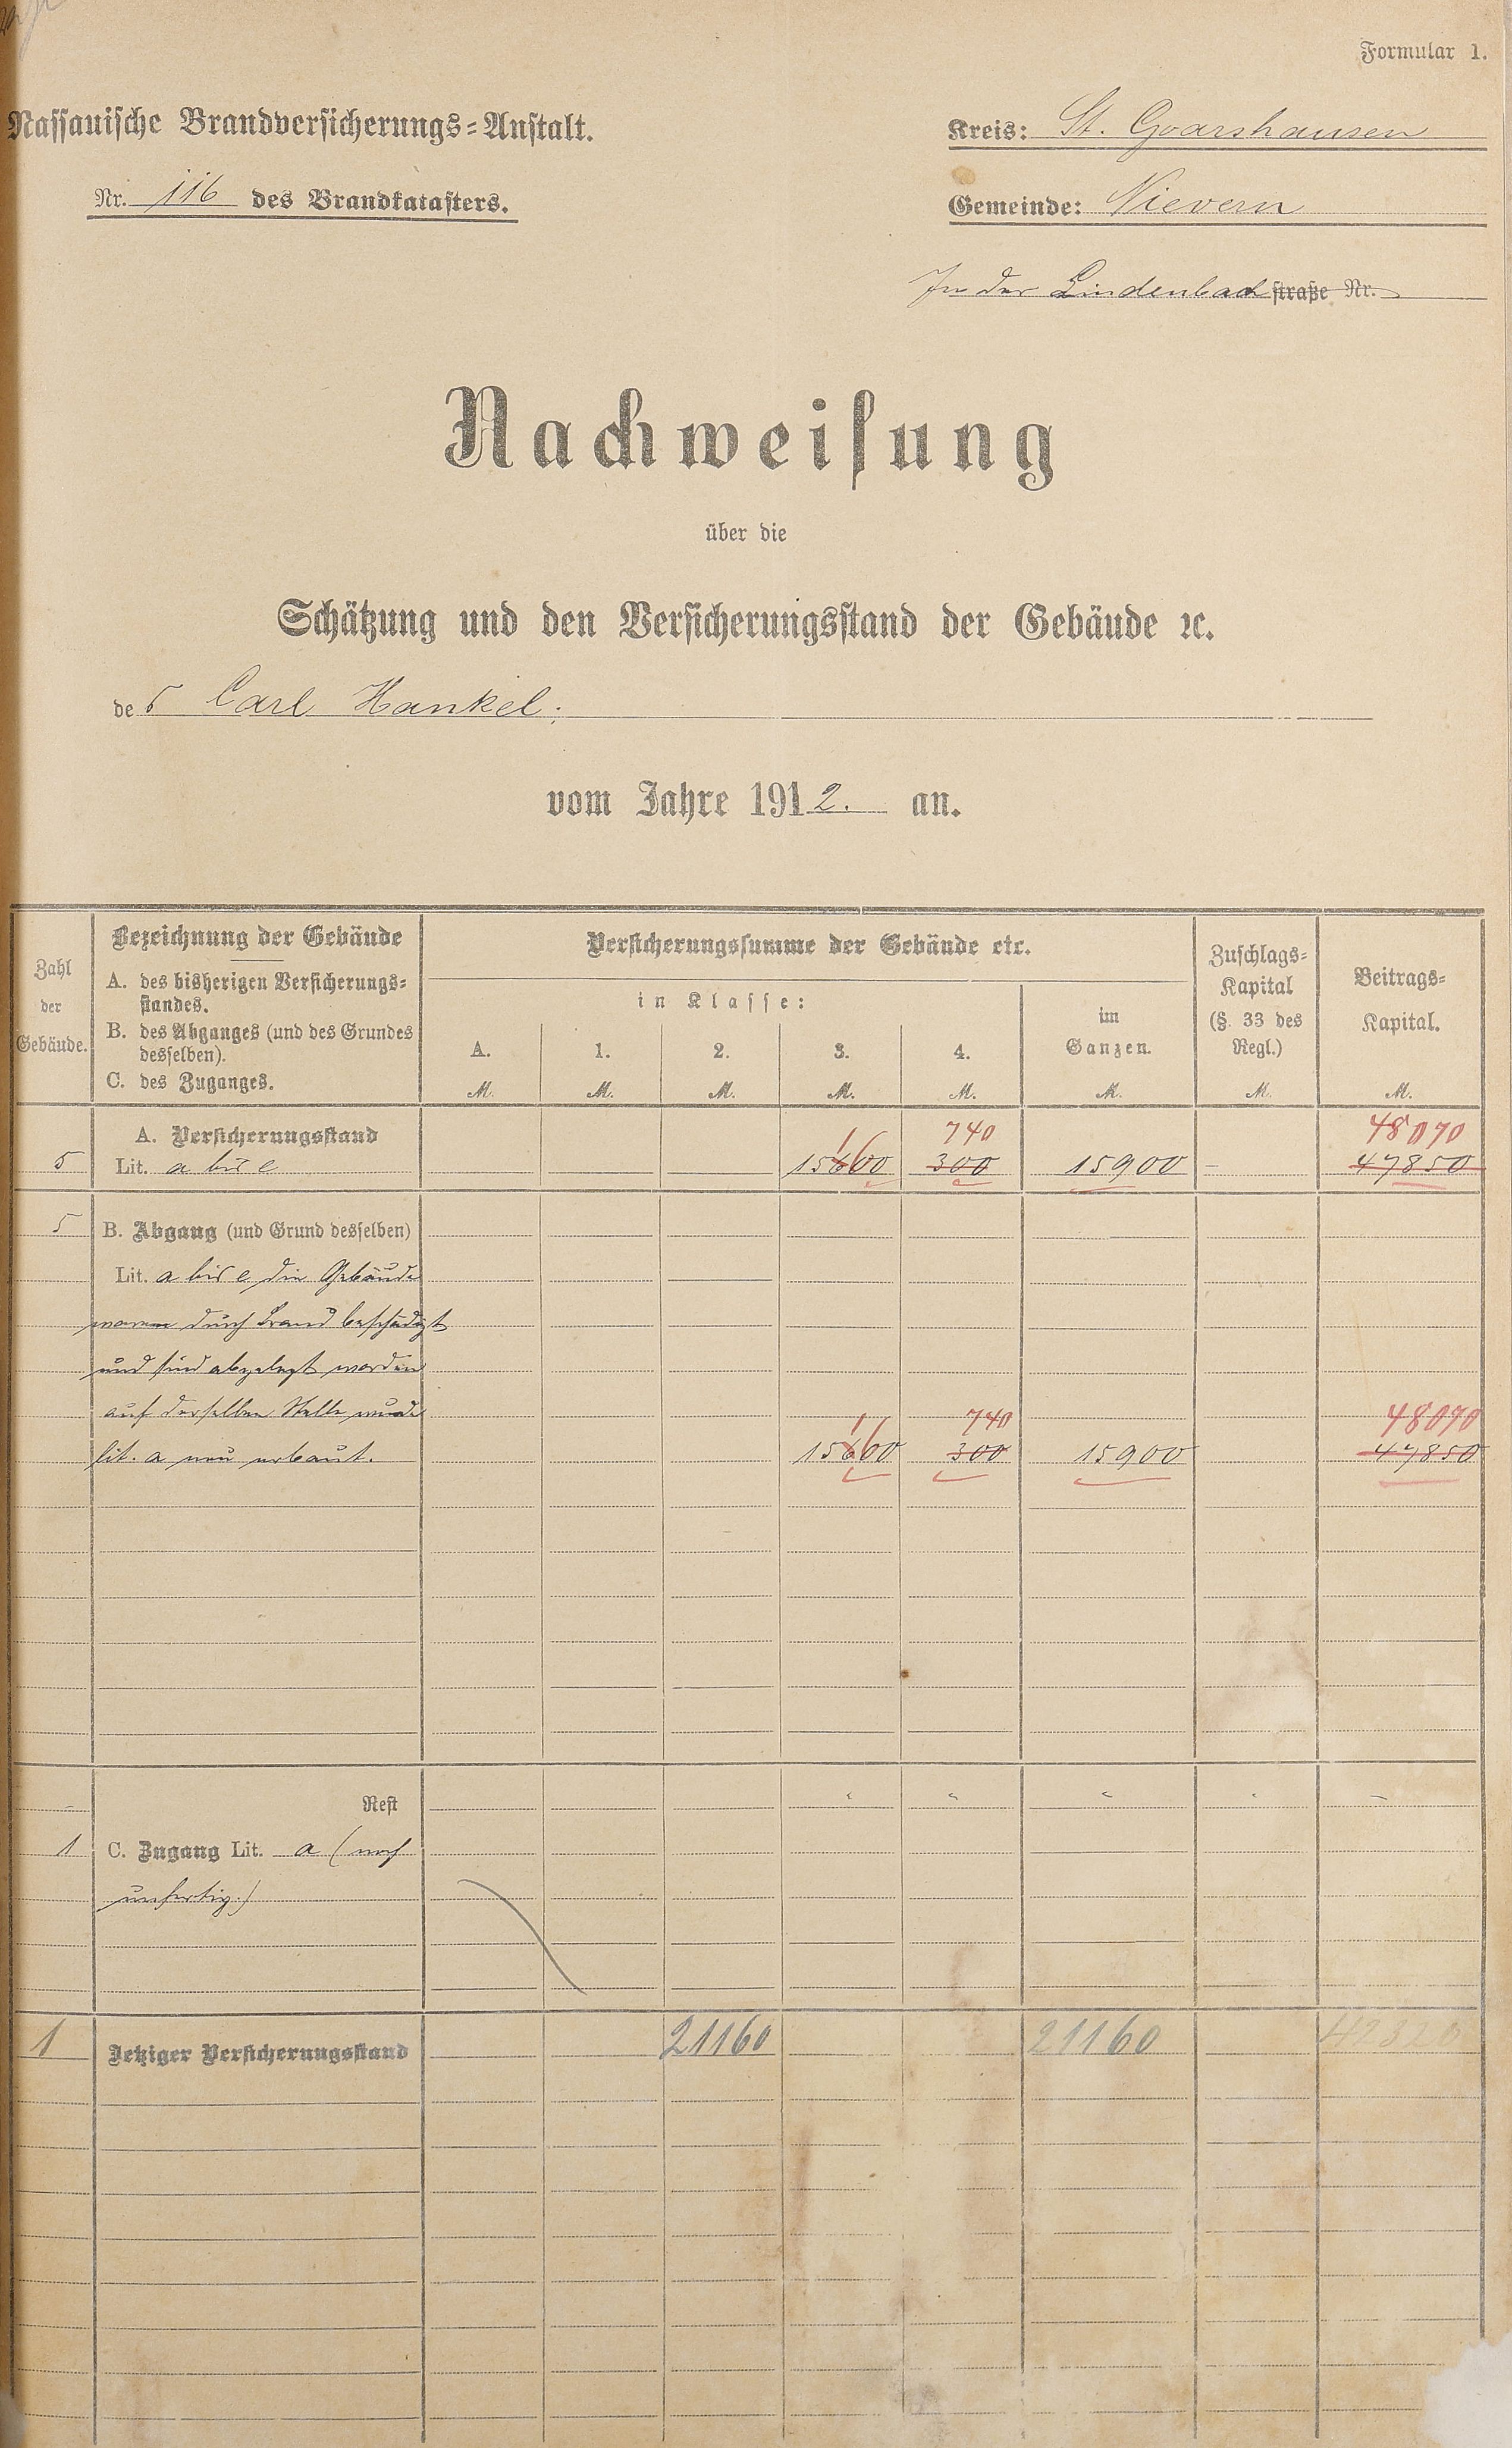 Formular 1.
Nassauische Brandversicherungs-Anstalt.
Kreis: St. Goarshausen
Nr. 116 des Brandkatasters.
Gemeinde: Nievern
In der Lindenbach straße Nr.
Nachweisung
über die
Schätzung und den Versicherungsstand der Gebäude ꝛc.
des Carl Hankel.
vom Jahre 1912. an.
Zahl der Gebäude.
Bezeichnung der Gebäude
A. des bisherigen Versicherungs-
standes.
B. des Abganges (und des Grundes
desselben).
C. des Zuganges.
Versicherungssumme der Gebäude etc.
in Klasse:
A. 1. 2. 3. 4.
im
Ganzen.
Zuschlags-
Kapital
(§. 33 des
Regl.)
Beitrags-
Kapital.
M. M. M. M. M. M. M. M.
A. Versicherungsstand
1 740 48070
5 Lit. a bis e 15600 300 15900 – 47850
5 B. Abgang (und Grund desselben)
Lit. a bis e die Gebäude
waren durch Brand beschädigt
und sind abgelegt worden
auf derselben Stelle wurde
1 740 48070
lit. a neu erbaut. 15600 300 15900 47850
– Rest " " " " –
1 C. Zugang Lit. a (noch
unfertig.)
1 Jetziger Versicherungsstand 21160 21160 42320